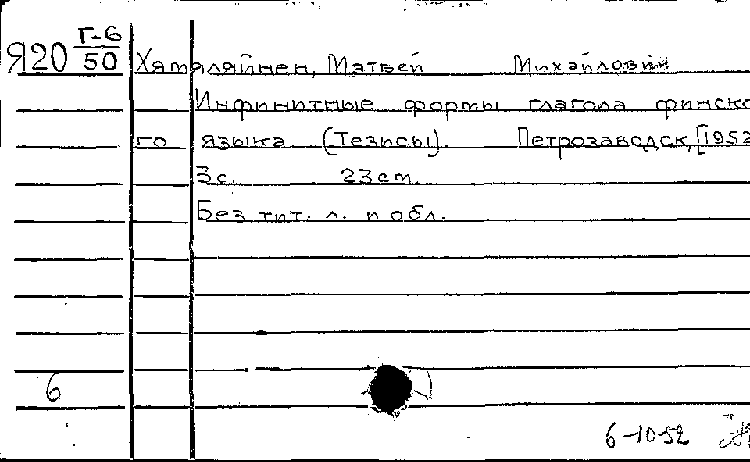 Я20 Г-6/50 Хямяляйнен, Матвей Михайлович
Инфинитные формы глагола финско
го языка (Тезисы). Петрозаводск, [1952
3с. 23см.
Без тит. л. и обл.
6
6-10-52